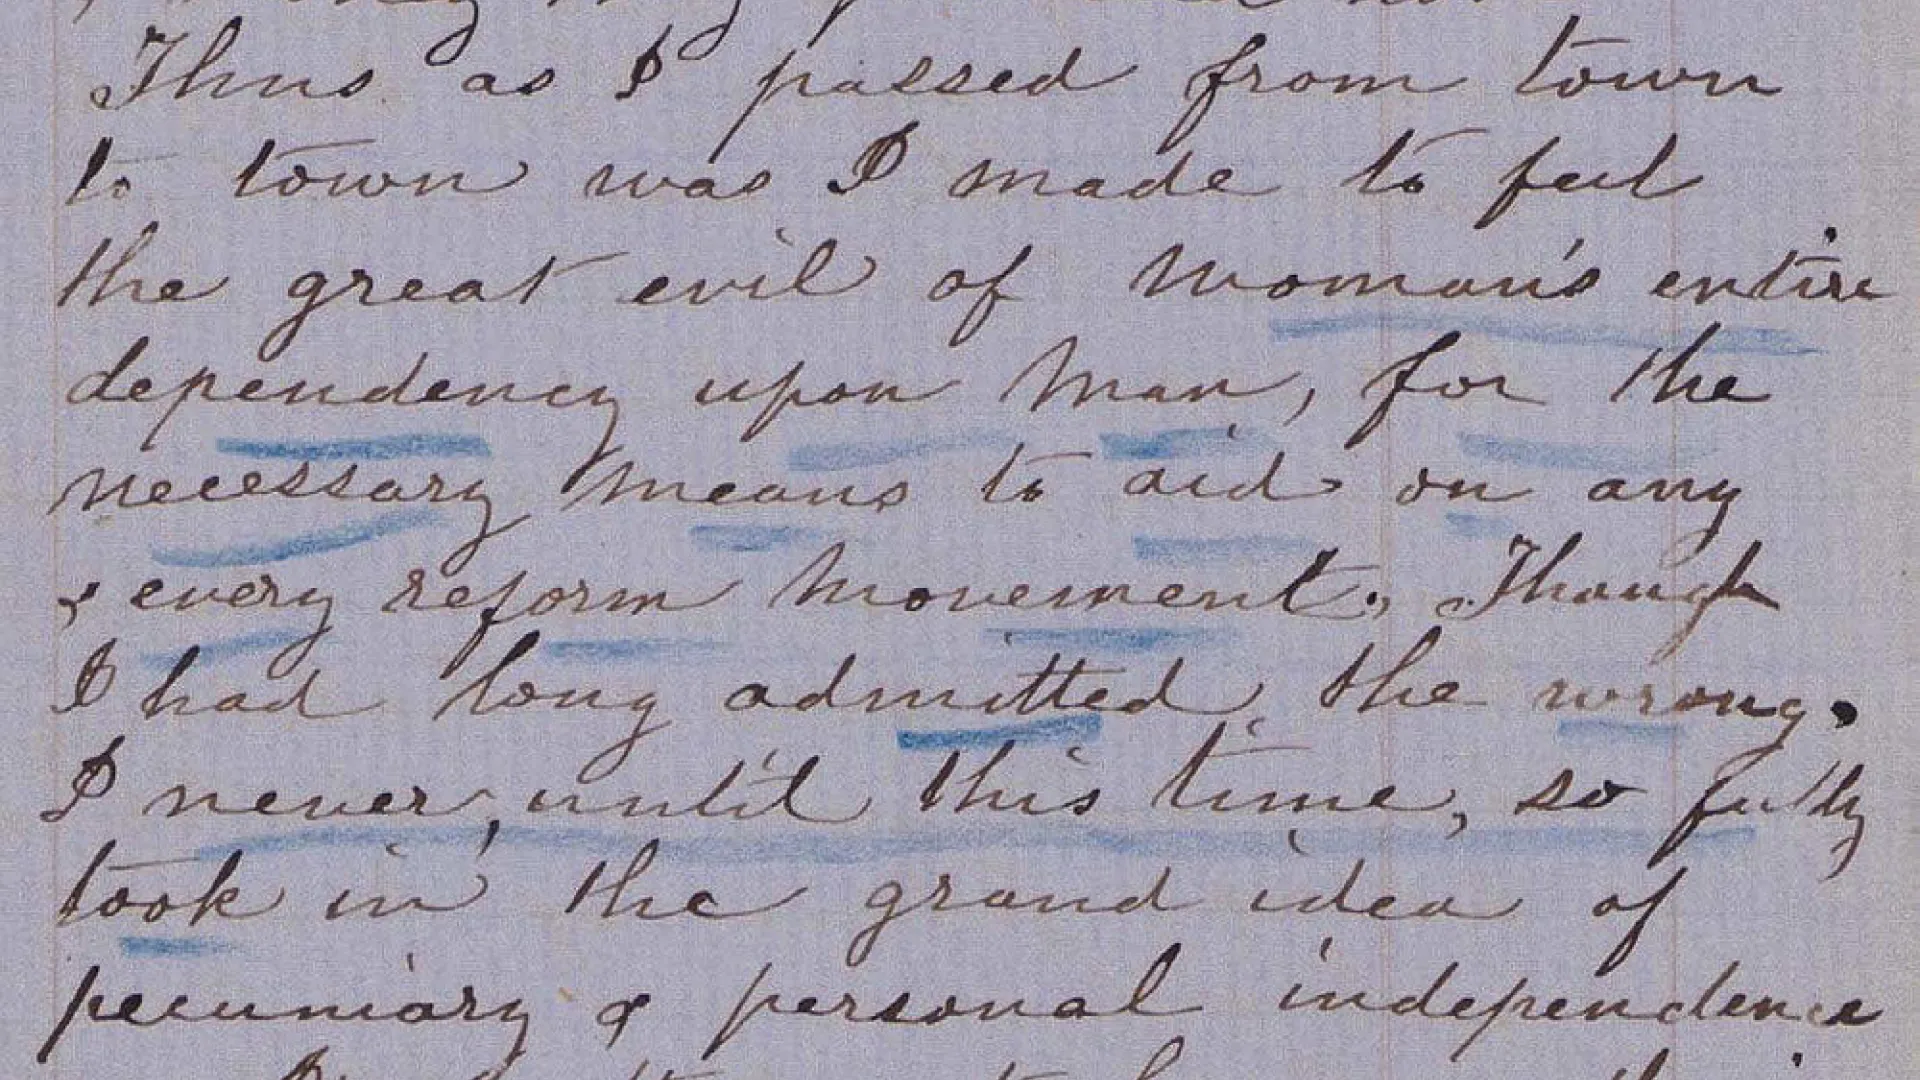 Thus as I passed from town
to town was I made to feel
the great evil of woman's entire
dependency upon man, for the
necessary means to aid on any
& every reform movement. Though
I had long admitted the wrong,
I never, until this time, so fully
took in the grand idea of
pecuniary & personal independence